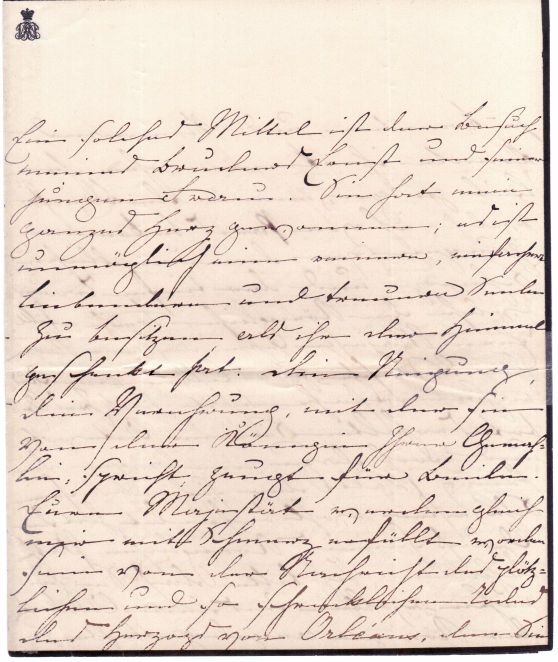 Ein solches Mittel ist der Besuch
meines Bruders Ernst und seiner
jungen Frau. Sie hat mein
ganzes Herz gewonnen; es ist
unmöglich eine reinere, einfachere
liebendere und treuere Seele
zu besitzen, als ihr der Himmel
geschenkt hat. Die Neigung,
die Verehrung, mit der sie
von der Königin Ihrer Gemah-
lin, spricht, zeugt für beide.
Eure Majestät werden gleich
mir mit Schmerz erfüllt worden
sein von der Nachricht des plötz-
lichen und so schrecklichen Todes
des Herzogs von Orléans, den Sie